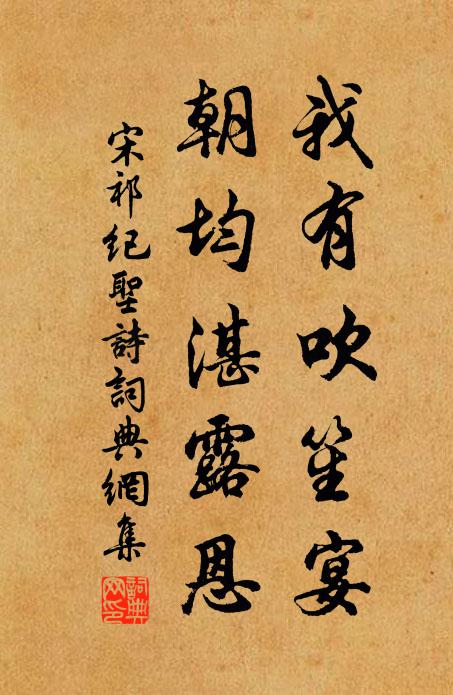 我有吹笙宴
朝均湛露恩
宋祁紀聖詩詞典網集
詞典網印